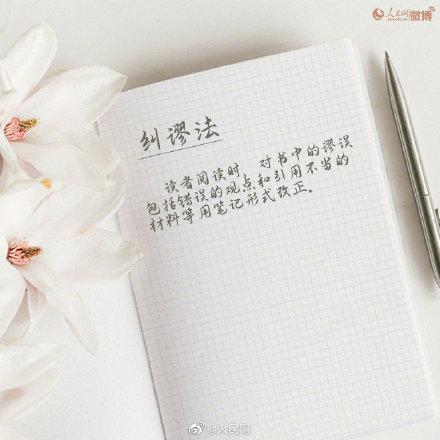 人民网
people.cn
微博
纠谬法
读者阅读时 对书中的谬误
包括错误的观点和引用不当的
材料等用笔记形式改正。
@人民网